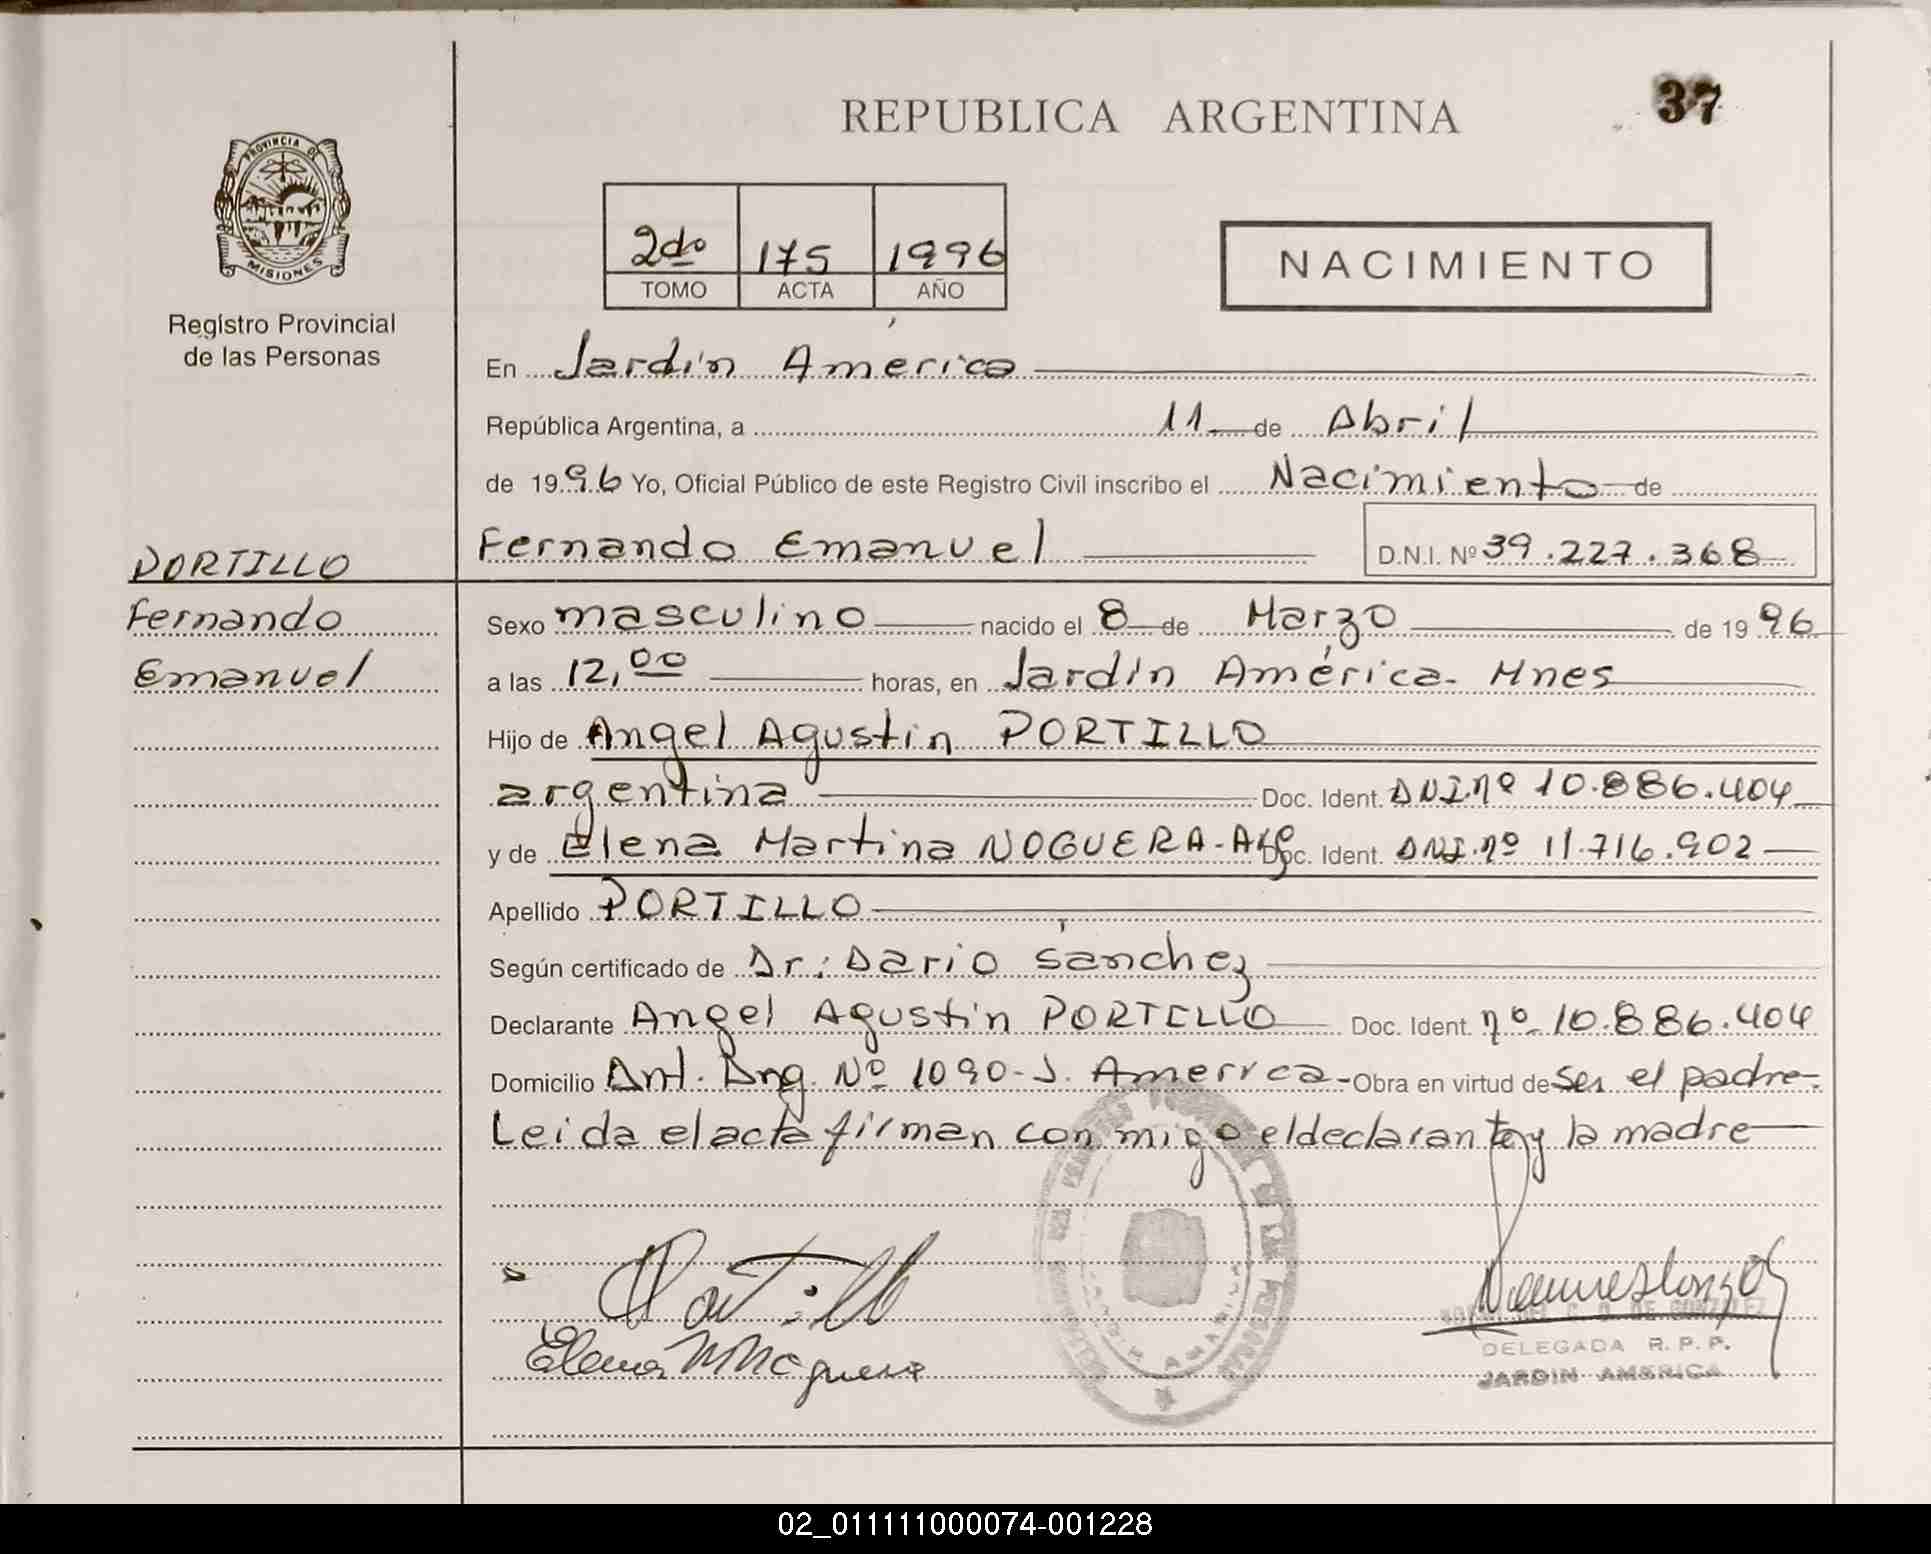 REPUBLICA ARGENTINA
37
PROVINCIA DE
MISIONES
Registro Provincial
de las Personas
2do 175 1996
TOMO ACTA AÑO
NACIMIENTO
En Jardín América
República Argentina, a 11 de Abril
de 1996 Yo, Oficial Público de este Registro Civil inscribo el Nacimiento de
Fernando Emanuel D.N.I. Nº 39.227.368
PORTILLO
Fernando
Emanuel
Sexo masculino nacido el 8 de Marzo de 1996
a las 12,00 horas, en Jardín América - Mnes
Hijo de Angel Agustin PORTILLO
argentina Doc. Ident. DNI.nº 10.886.404
y de Elena Martina NOGUERA - Arg Doc. Ident. DNI.nº 11.716.902
Apellido PORTILLO
Según certificado de Dr: Dario Sánchez
Declarante Angel Agustín PORTILLO Doc. Ident. nº 10.886.404
Domicilio Ant. Nº 1090 - J. America - Obra en virtud de ser el padre.
Leida el acta firman con migo el declarante y la madre
Portillo
Elena M Noguera
DE GONZALEZ
DELEGADA R.P.P.
JARDIN AMERICA
02_011111000074-001228